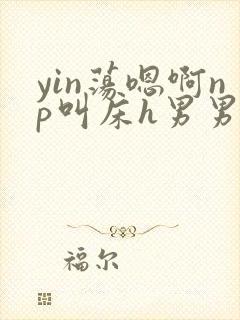 yin荡嗯啊n
p叫床h男男
福尔